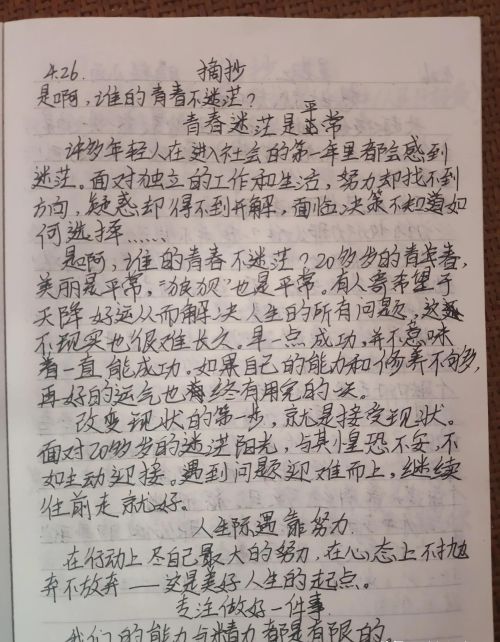 4.26. 摘抄
是啊,谁的青春不迷茫?
青春迷茫是平常
许多年轻人在进入社会的第一年里都会感到
迷茫。面对独立的工作和生活,努力却找不到
方向,疑惑却得不到开解,面临决策不知道如
何选择……
是啊,谁的青春不迷茫?20多岁的青春,
美丽是平常,“狼狈”也是平常。有人寄希望于
天降好运从而解决人生的所有问题,这
不现实也很难长久。早一点成功,并不意味
着一直能成功。如果自己的能力和修养不够,
再好的运气也终有用完的一天。
改变现状的第一步,就是接受现状。
面对20多岁的迷茫阳光,与其惶恐不安,不
如主动迎接。遇到问题迎难而上,继续
往前走就好。
人生际遇靠努力
在行动上尽自己最大的努力,在心态上不抛
弃不放弃——这是美好人生的起点。
专注做好一件事
我们的能力与精力都是有限的